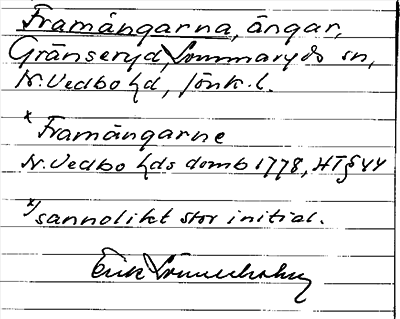 Framängarna, ängar,
Gränseryd, Lommaryds sn,
N. Vedbo hd, Jönk. l.
x Framängarne
N. Vedbo hds domb 1778, HT § 44
x/ sannolikt stor initial.
Erik